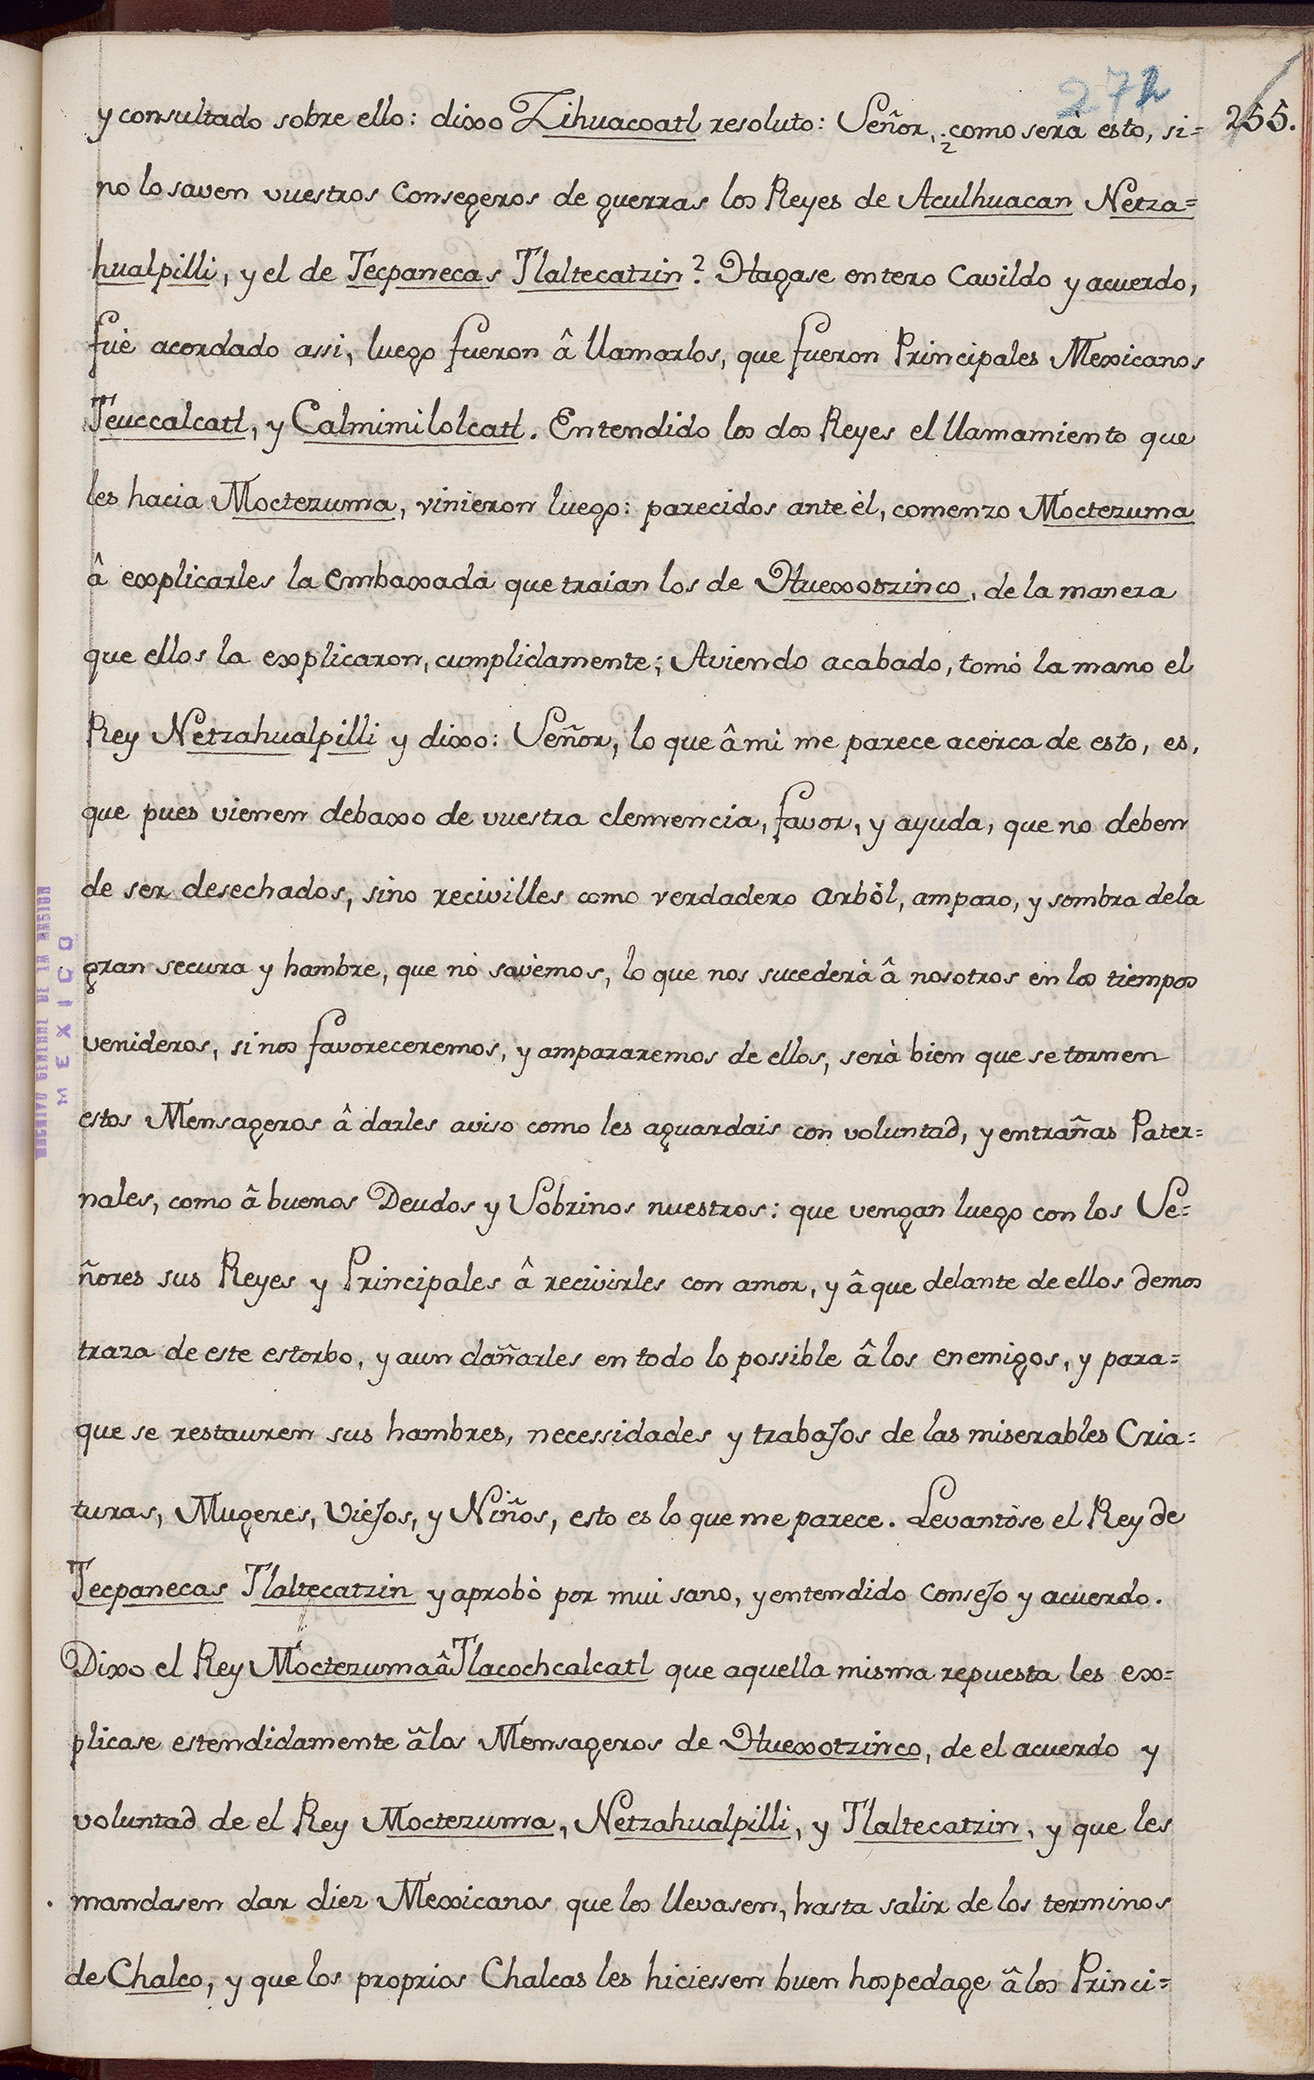 272
255.
y consultado sobre ello: dixo Zihuacoatl resoluto: Señor, ¿como serà esto, si=
no lo saven vuestros Consegeros de guerras los Reyes de Aculhuacan Netza=
hualpilli, y el de Tecpanecas Tlaltecatzin? Hagase entero Cavildo y acuerdo,
fuè acordado assi, luego fueron â llamarlos, que fueron Principales Mexicanos
Teuccalcatl, y Calmimilolcatl. Entendido los dos Reyes el llamamiento que
les hacia Moctezuma, vinieron luego: parecidos ante èl, comenzo Moctezuma
â explicarles la embaxada que traian los de Huexotzinco, de la manera
que ellos la explicaron, cumplidamente; Aviendo acabado, tomò la mano el
Rey Netzahualpilli y dixo: Señor, lo que â mi me parece acerca de esto, es,
que pues vienen debaxo de vuestra clemencia, favor, y ayuda, que no deben
de ser desechados, sino recivilles como verdadero arbòl, amparo, y sombra dela
gran secura y hambre, que no savemos, lo que nos sucederà â nosotros en los tiempos
venideros, si nos favoreceremos, y ampararemos de ellos, serà bien que se tornen
estos Mensageros â darles aviso como les aguardais con voluntad, y entrañas Pater=
nales, como â buenos Deudos y Sobrinos nuestros: que vengan luego con los Se=
ñores sus Reyes y Principales â recivirles con amor, y â que delante de ellos demos
traza de este estorbo, y aun dañarles en todo lo possible â los enemigos, y para=
que se restauren sus hambres, necessidades y trabaJos de las miserables Cria=
turas, Mugeres, VieJos, y Niños, esto es lo que me parece. Levantòse el Rey de
Tecpanecas Tlaltecatzin y aprobò por mui sano, y entendido conseJo y acuerdo.
Dixo el Rey Moctezuma â Tlacochcalcatl que aquella misma repuesta les ex=
plicase estendidamente â los Mensageros de Huexotzinco, de el acuerdo y
voluntad de el Rey Moctezuma, Netzahualpilli, y Tlaltecatzin, y que les
mandasen dar diez Mexicanos que los llevasen, hasta salir de los terminos
de Chalco, y que los proprios Chalcas les hiciessen buen hospedage â los Princi=
ARCHIVO GENERAL DE LA NACION
MEXICO